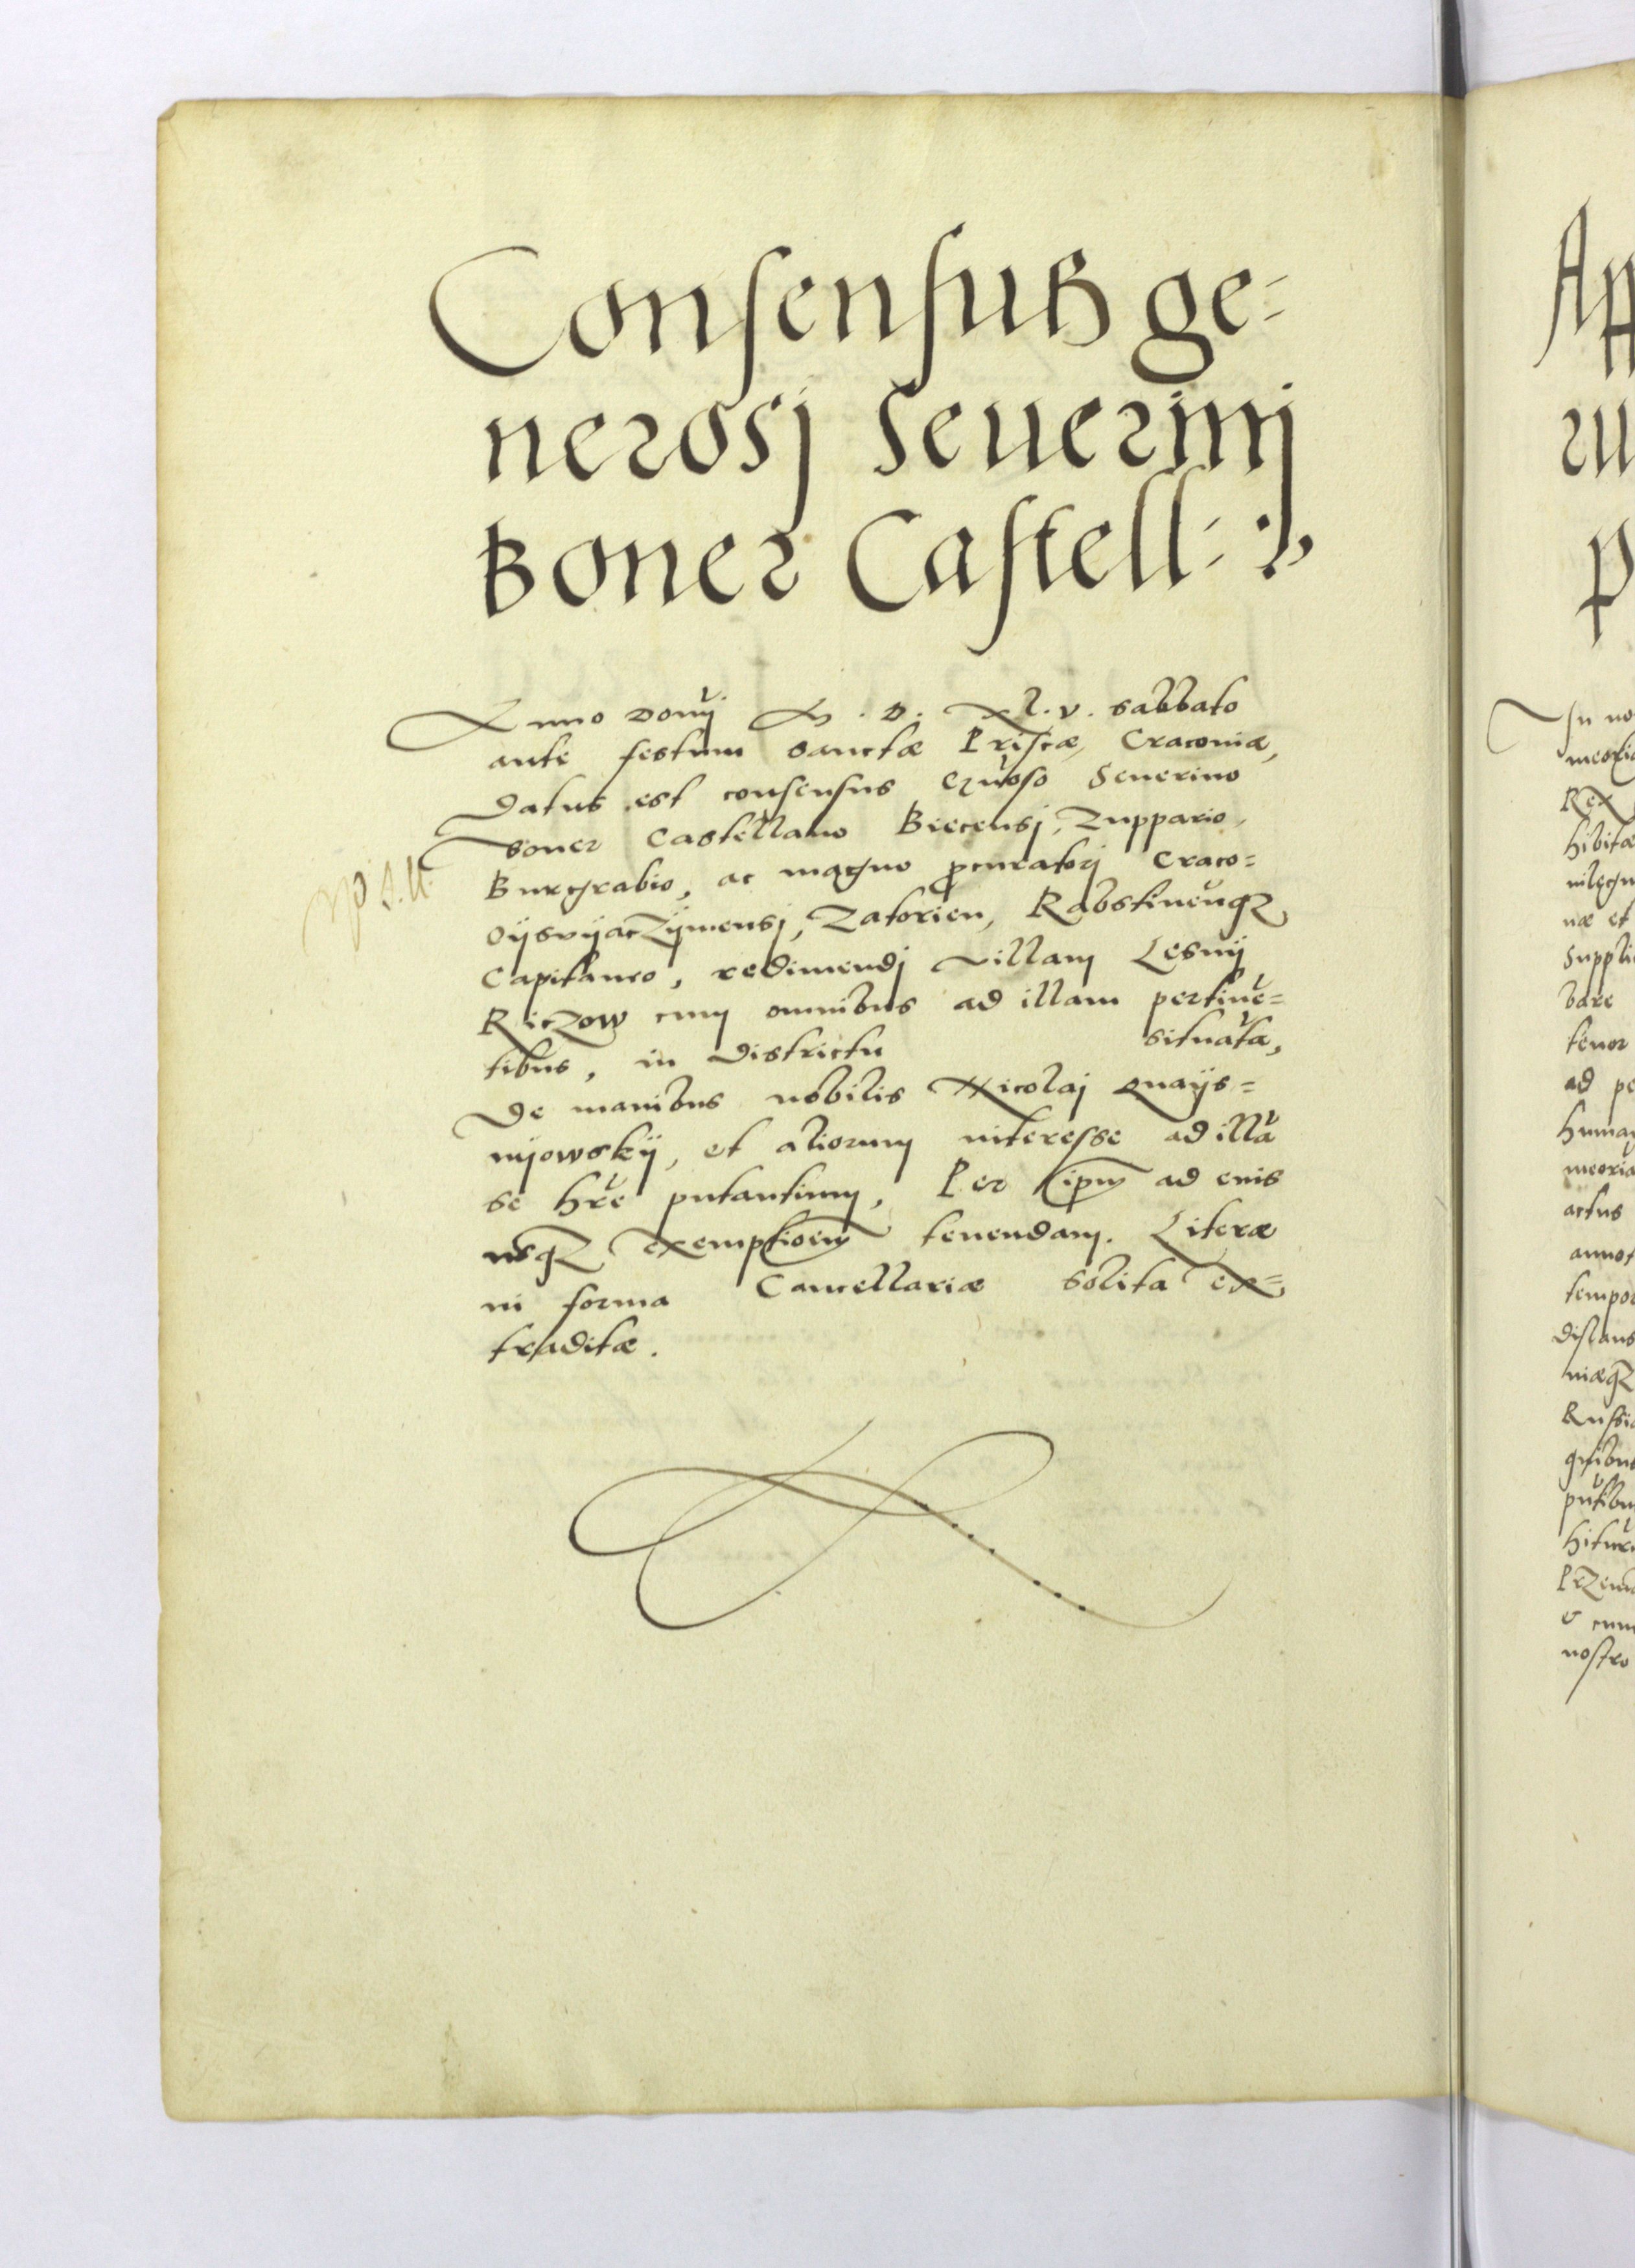 Consensus ge=
nerosj Seuerinj
Boner Castell:
Anno Domj M. D. Xl. v. sabbato
ante festum sanctæ Priscæ, Cracouiæ,
Datus est consensus Gñoso Seuerino
Boner Castellano Biecensj, Zuppario,
Burgrabio, ac magno pcuratorj Craco=
Oÿsvÿaczÿmensj, Zatorien, Rabstineñqz
Capitaneo, redimendj villam Lesnÿ
Riczow cum omnibus ad illam pertinē=
tibus, in Districtu situatā,
De manibus nobilis Nicolaj
mÿowskÿ, et aliorum interesse ad illā
se hr̃e putantium, Per ipm ad eius
usqz exemptioem tenendam. Literæ
in forma Cancellariæ solita ex=
traditæ.
Ap
ru
p
In no
Rex
hibitæ
næ et
Suppli
bare
tenor
ad pe
human
meoria
actus
annot
tempor
distans
niæqz
Russiæ
nostro